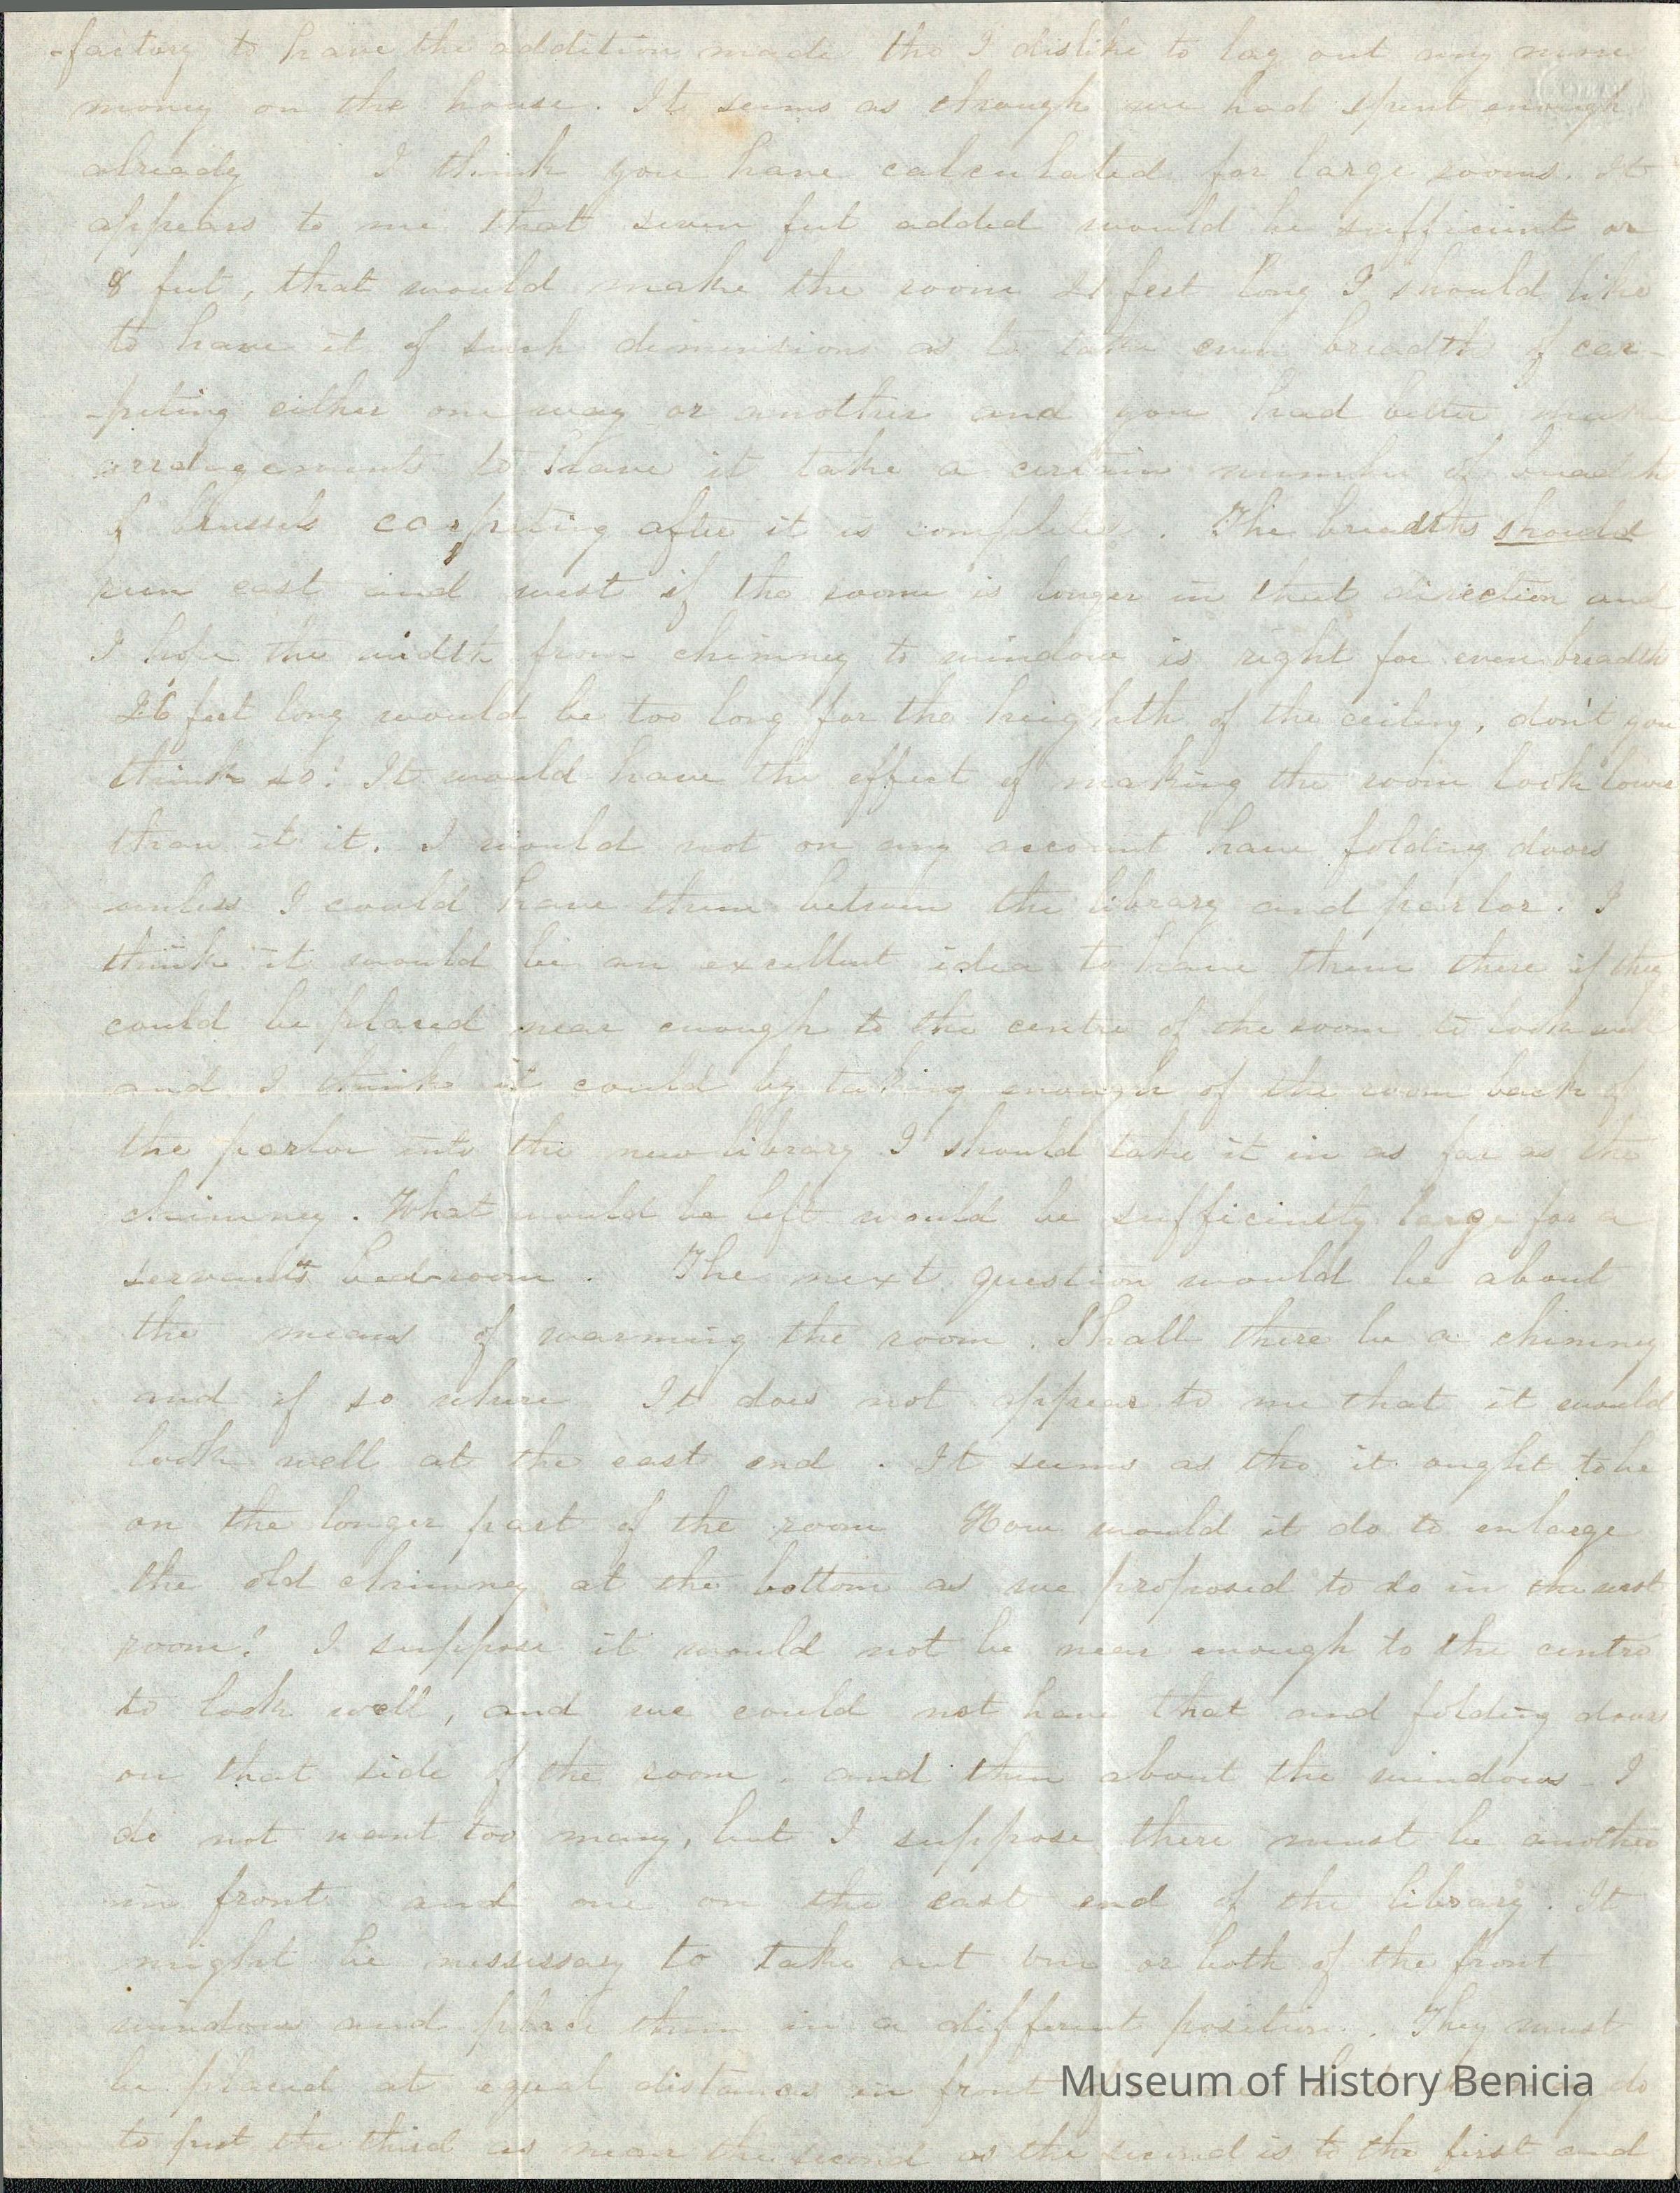 -factory to have the addition made tho I dislike to lay out any more
money on the house. It seems as though we had spent enough
already I think you have calculated for large rooms. It
appears to me that seven feet added would be sufficient or
8 feet, that would make the room feet long I should like
to have it of such dimensions as to take even breadth of car-
-peting either one way or another and you had better make
arrangements to have it take a certain number of breadth
of brussels carpeting after it is completed. The breadths should
run east and west if the room is longer in that direction and
I hope the width from chimney to window is right for even breadth
26 feet long would be too long for the heighth of the ceiling, don't you
think so? It would have the effect of making the room look lower
than it it. I would not on any account have folding doors
unless I could have them between the library and parlor. I
think it would be an excellent idea to have them there if they
could be placed near enough to the centre of the room to look well
and I think it could by taking enough of the room back of
the parlor into the new library I should take it in as far as the
chimney. What would be left would be sufficiently large for a
servant's bedroom. The next question would be about
the means of warming the room. Shall there be a chimney
and if so where It does not appear to me that it would
look well at the east end. It seems as tho it ought to be
on the longer part of the room How would it do to enlarge
the old chimney at the bottom as we proposed to do in the west
room? I suppose it would not be near enough to the centre
to look well, and we could not have that and folding doors
on that side of the room. and then about the windows I
do not want too many, but I suppose there must be another
in front and one on the east end of the library. It
might be nessessary to take out one or both of the front
windows and place them in a different position. They must
be placed at equal distances in front do
to put the third as near the second as the second is to the first and
Museum of History Benicia